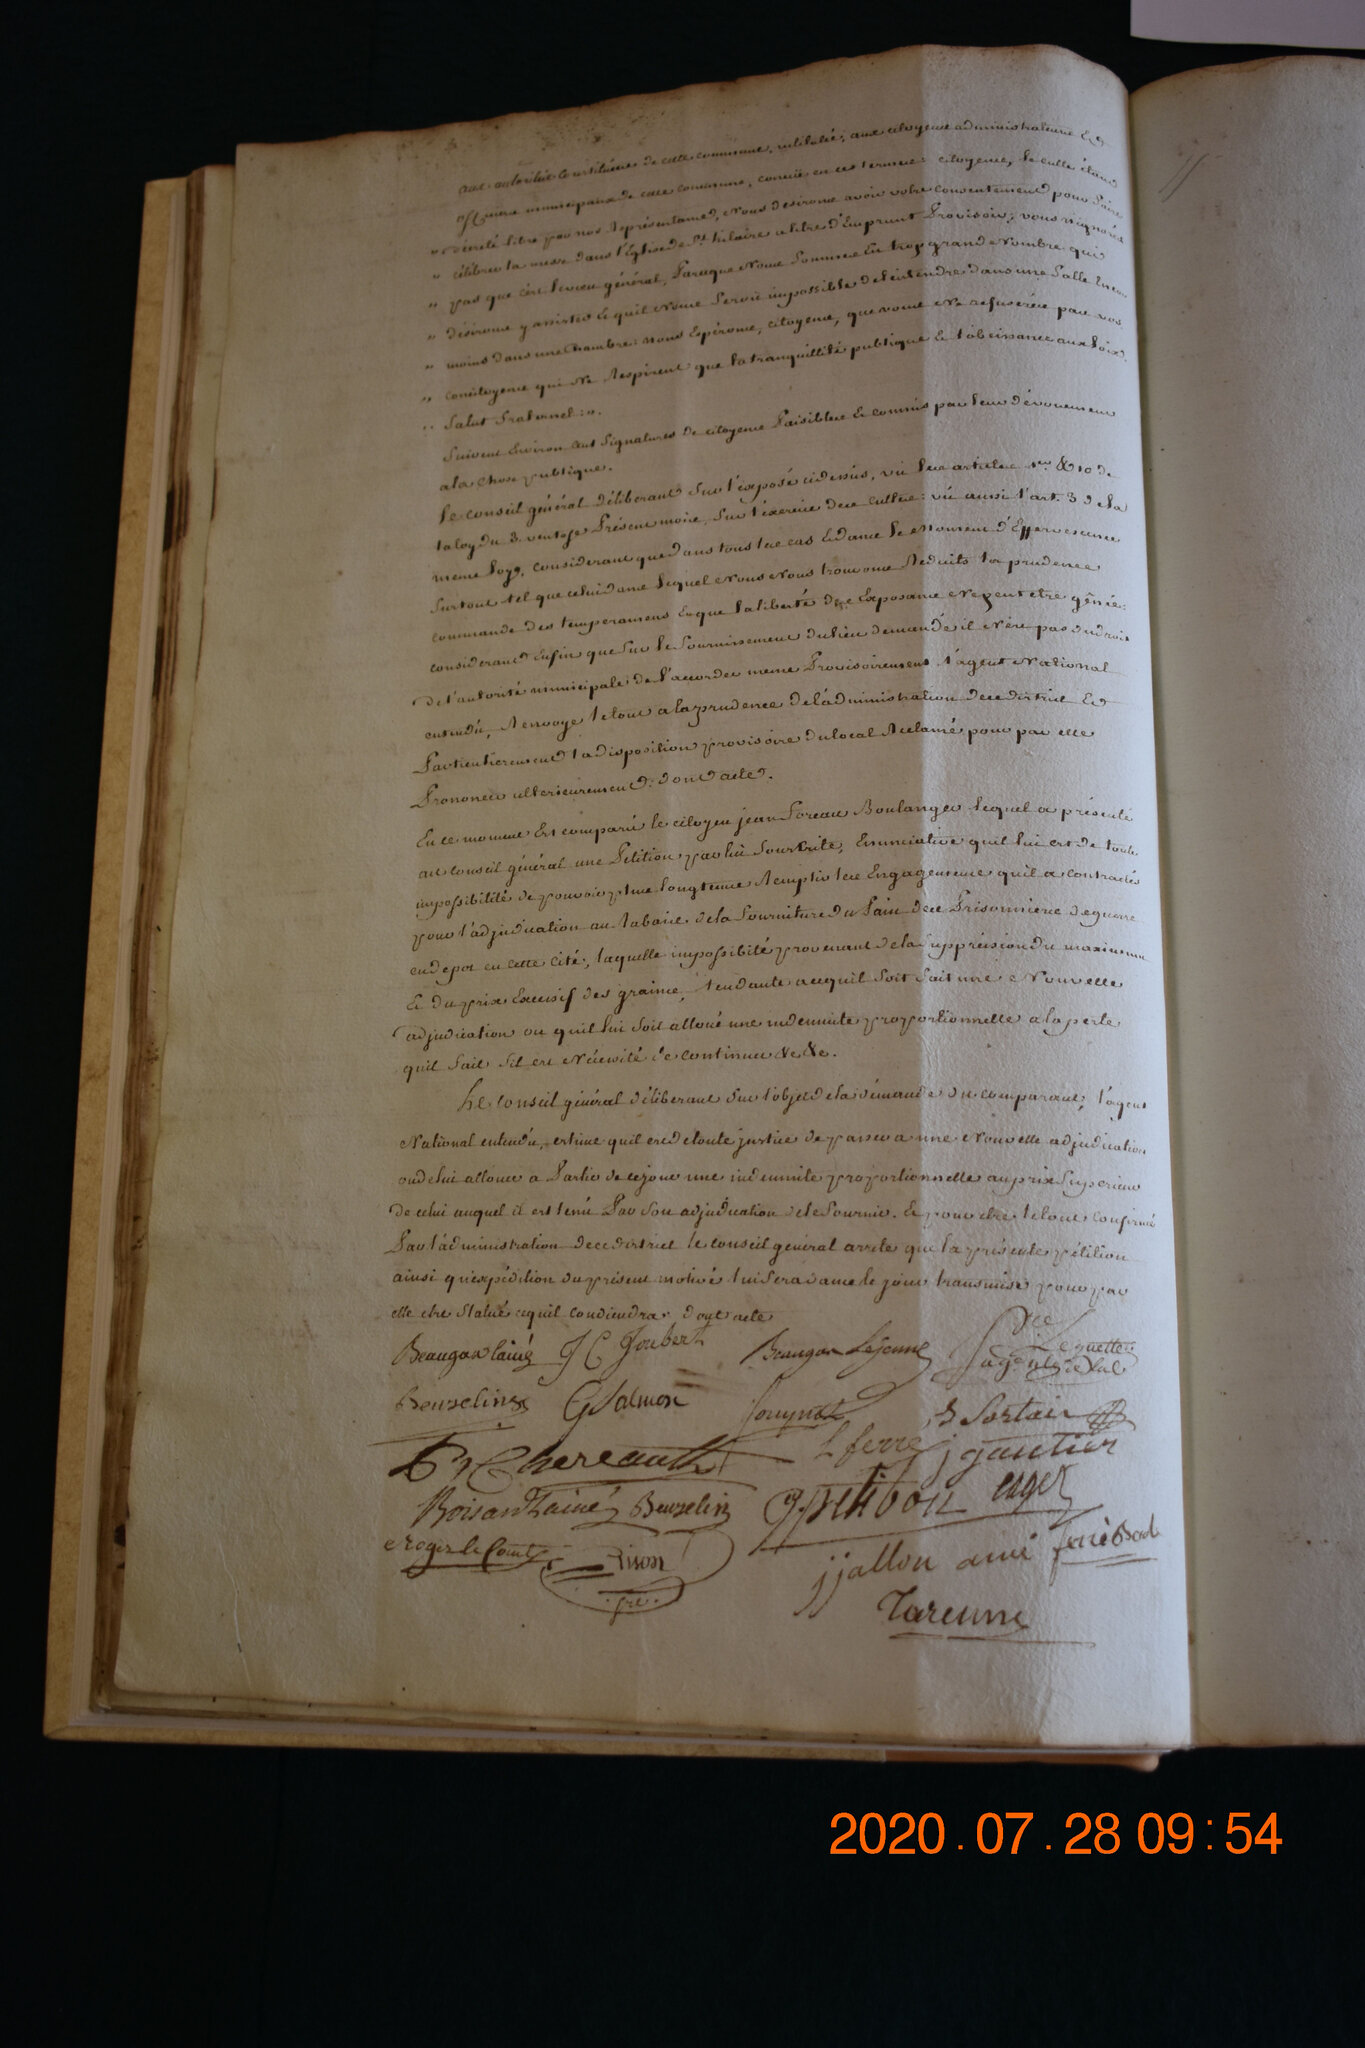 aux autorités Constituées de cette commune, intitulée; aux citoyens administrateurs Et
officiers municipaux de cette commune, concüe en ces termes: citoyens, le culte étant
" décrété libre par nos Représentans, Nous desirons avoir votre consentement pour faire
" célébrer la messe dans l'Eglise de St. hilaire a titre d'Emprunt Provisoir; vous n'ignorés
" pas que c'est le vœu général, Parceque Nous Sommes En trop grand Nombre qui
" désirons y assister Et quil Nous Seroit impossible de l'entendre dans une Salle Encore
" moins dans une Chambre: nous Espérons, citoyens, que vous Ne refuserés pas vos
" concitoyens qui Ne Respirent que la tranquillité publique Et l'obeissance aux Loix.
" Salut fraternel:".
Suivent Environ cent Signatures de citoyens Paisibles Et connus par leur dévouement
a la Chose publique.
Le conseil général délibérant Sur l'exposé cidessus, vû les articles 1er & 10 de
la loy du 3 ventose Présent mois, Sur l'exercice des cultes: vû aussi l'art. 3 de la
meme loy, considerant que dans tous les cas Et dans le Moment d'Effervescence
Surtout tel que celui dans lequel Nous Nous trouvons Reduits la prudence
commande des temperamens Et que la liberté des Exposans Ne peut etre gênée:
considerant Enfin que Sur le fournissement du lieu demandé il N'est pas du droit
de l'autorité municipale de l'accorder meme Provisoirement l'agent National
entendu, Renvoye le tout a la prudence de l'administration de ce district Et
Particulierement la disposition provisoire du local Reclamé pour par elle
Prononcer ulterieurement: dont acte.
En ce moment Est comparû le citoyen jean Loreau Boulanger lequel a présenté
au conseil général une Pétition par lui Souscrite, Enunciative quil lui est de toute
impossibilité de pouvoir plus longtems Remplir les Engagemens qu'il a contractés
pour l'adjudication au Rabais de la fourniture du Pain des Prisonniers de guerre
en depot en cette cité, laquelle impossibilité provenant de la Suppression du maximum
Et du prix Excessif des grains, tendante acequil Soit fait une Nouvelle
adjudication ou qu'il lui Soit alloué une indemnité proportionnelle a la perte
quil fait Sil est Nécessité de continuer &c &c.
Le Conseil général délibérant Sur l'objet de la démande du comparant, l'agent
National entendu, estime quil est de toute justice de passer a une Nouvelle adjudication
ou de lui allouer a Partir de ce jour une indemnité proportionnelle au prix Superieur
de celui auquel il est tenû Par Son adjudication de le fournir. Et pour etre le tout confirmé
Par l'administration de ce district le conseil général arrete que la présente pétition
ainsi qu'expédition du présent motivé lui Sera dans le jour transmise pour par
elle etre Statué cequil Conviendra. dont acte
Beaugars lainé J C Joubert Beaugars Le jeune
Lequette
agent national
Beuzelin G Salmon
Sortais
Chereault L ferré j gautier
Boisard lainé Beuzelin G. petibon Oger
Roger le Comte Pinson
jjallon ainé ferré
.gre.
Tarenne
2020.07.28 09:54